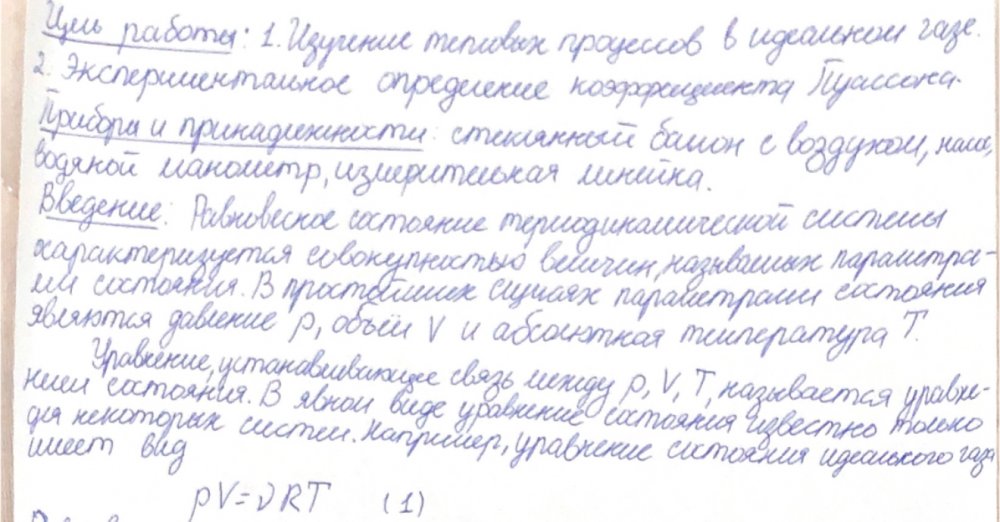 Цель работы: 1. Изучение тепловых процессов в идеальном газе.
2. Экспериментальное определение коэффициента Пуассона.
Приборы и принадлежности: стеклянный балон с воздухом, насос,
водяной манометр, измерительная линейка.
Введение: Равновесное состояние термодинамической системы
характеризуется совокупностью величин, называемых параметра-
ми состояния. В простейших случаях параметрами состояния
являются давление p, объём V и абсолютная температура T.
Уравнение, устанавливающее связь между p, V, T, называется уравне-
нием состояния. В явном виде уравнение состояния известно только
для некоторых систем. Например, уравнение состояния идеального газа
имеет вид
pV=νRT (1)